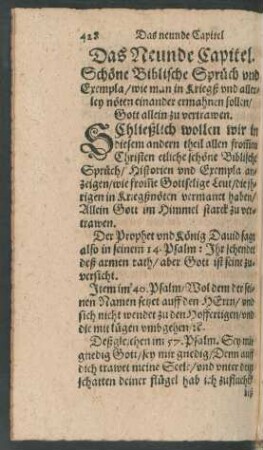 428 Das neunde Capitel
Das Neunde Capitel.
Schöne Biblische Sprüch vnd
Exempla/ wie man in Kriegß vnd aller-
ley nöten einander ermahnen sollen/
Gott allein zu vertrawen.
SChließlich wollen wir in
diesem andern theil allen from̃en
Christen etliche schöne Biblische
Sprüch/ Historien vnd Exempla an-
zeigen/ wie from̃e Gottselige Leut/ die jh-
rigen in Kriegßnöten vermanet haben/
Allein Gott im Himmel starck zu ver-
trawen.
Der Prophet vnd König Dauid sagt
also in seinem 14. Psalm: Jhr schendet
deß armen rath/ aber Gott ist seine zu-
versicht.
Jtem im 40. Psalm/ Wol dem der sei-
nen Namen setzet auff den HErrn/ vnd
sich nicht wendet zu den Hoffertigen/ vnd
die mit lügen vmbgehen ꝛc.
Deßgleichen im 57. Psalm. Sey mir
gnedig Gott/ sey mir gnedig/ Denn auff
dich trawet meine Seele/ vnd vnter dem
schatten deiner flügel hab ich zuflucht/
biß